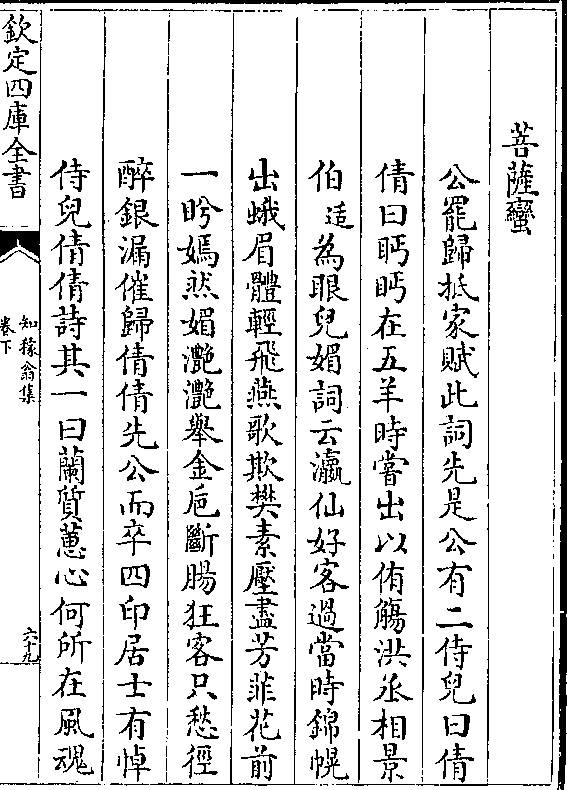 菩薩蠻
公罷歸抵家賦此詞先是公有二侍兒曰倩
倩曰盻盻在五羊時嘗出以侑觴洪丞相景
伯适為眼兒媚詞云瀛仙好客過當時錦幌
出蛾眉體輕飛燕歌欺樊素壓盡芳菲花前
一盻嫣然媚灧灧舉金巵斷腸狂客只愁徑
醉銀漏催歸倩倩先公而卒四印居士有悼
侍兒倩倩詩其一曰蘭質蕙心何所在風魂
欽定四庫全書
知稼翁集
卷下
六十九